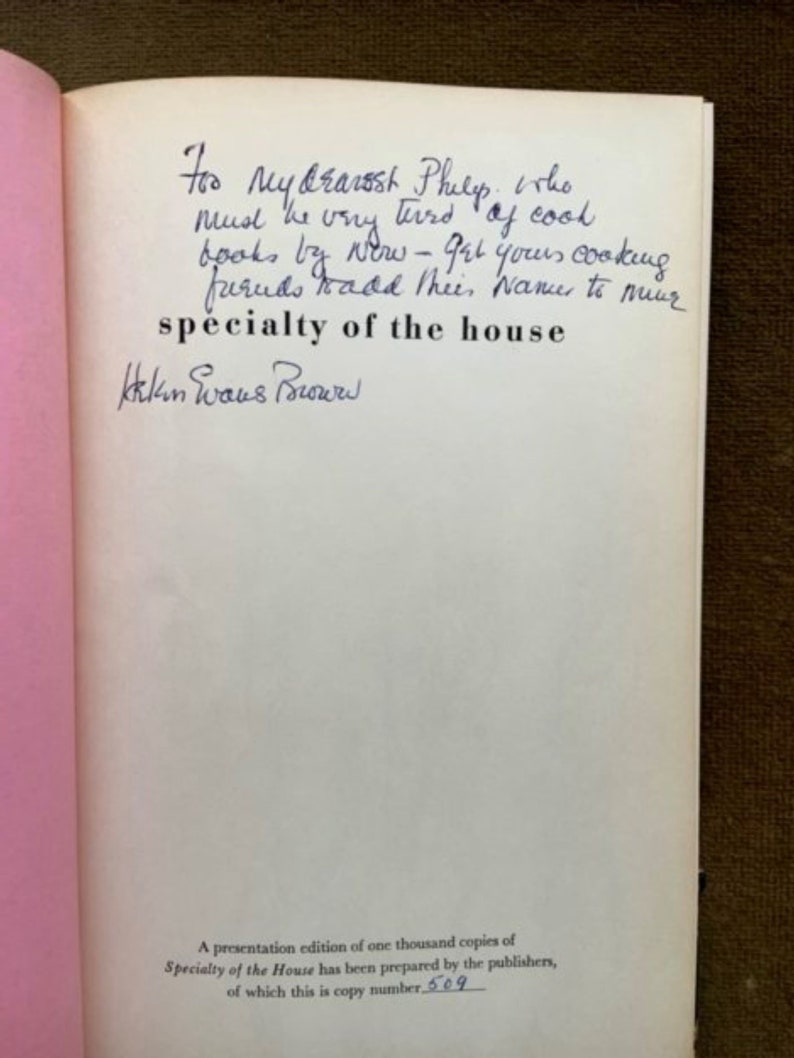 For My dearest Philip. who
must be very tired of cook
books by Now – Get yours cooking
friends to add their Names to mine
specialty of the house
Helen Evans Brown
A presentation edition of one thousand copies of
Specialty of the House has been prepared by the publishers,
of which this is copy number 509